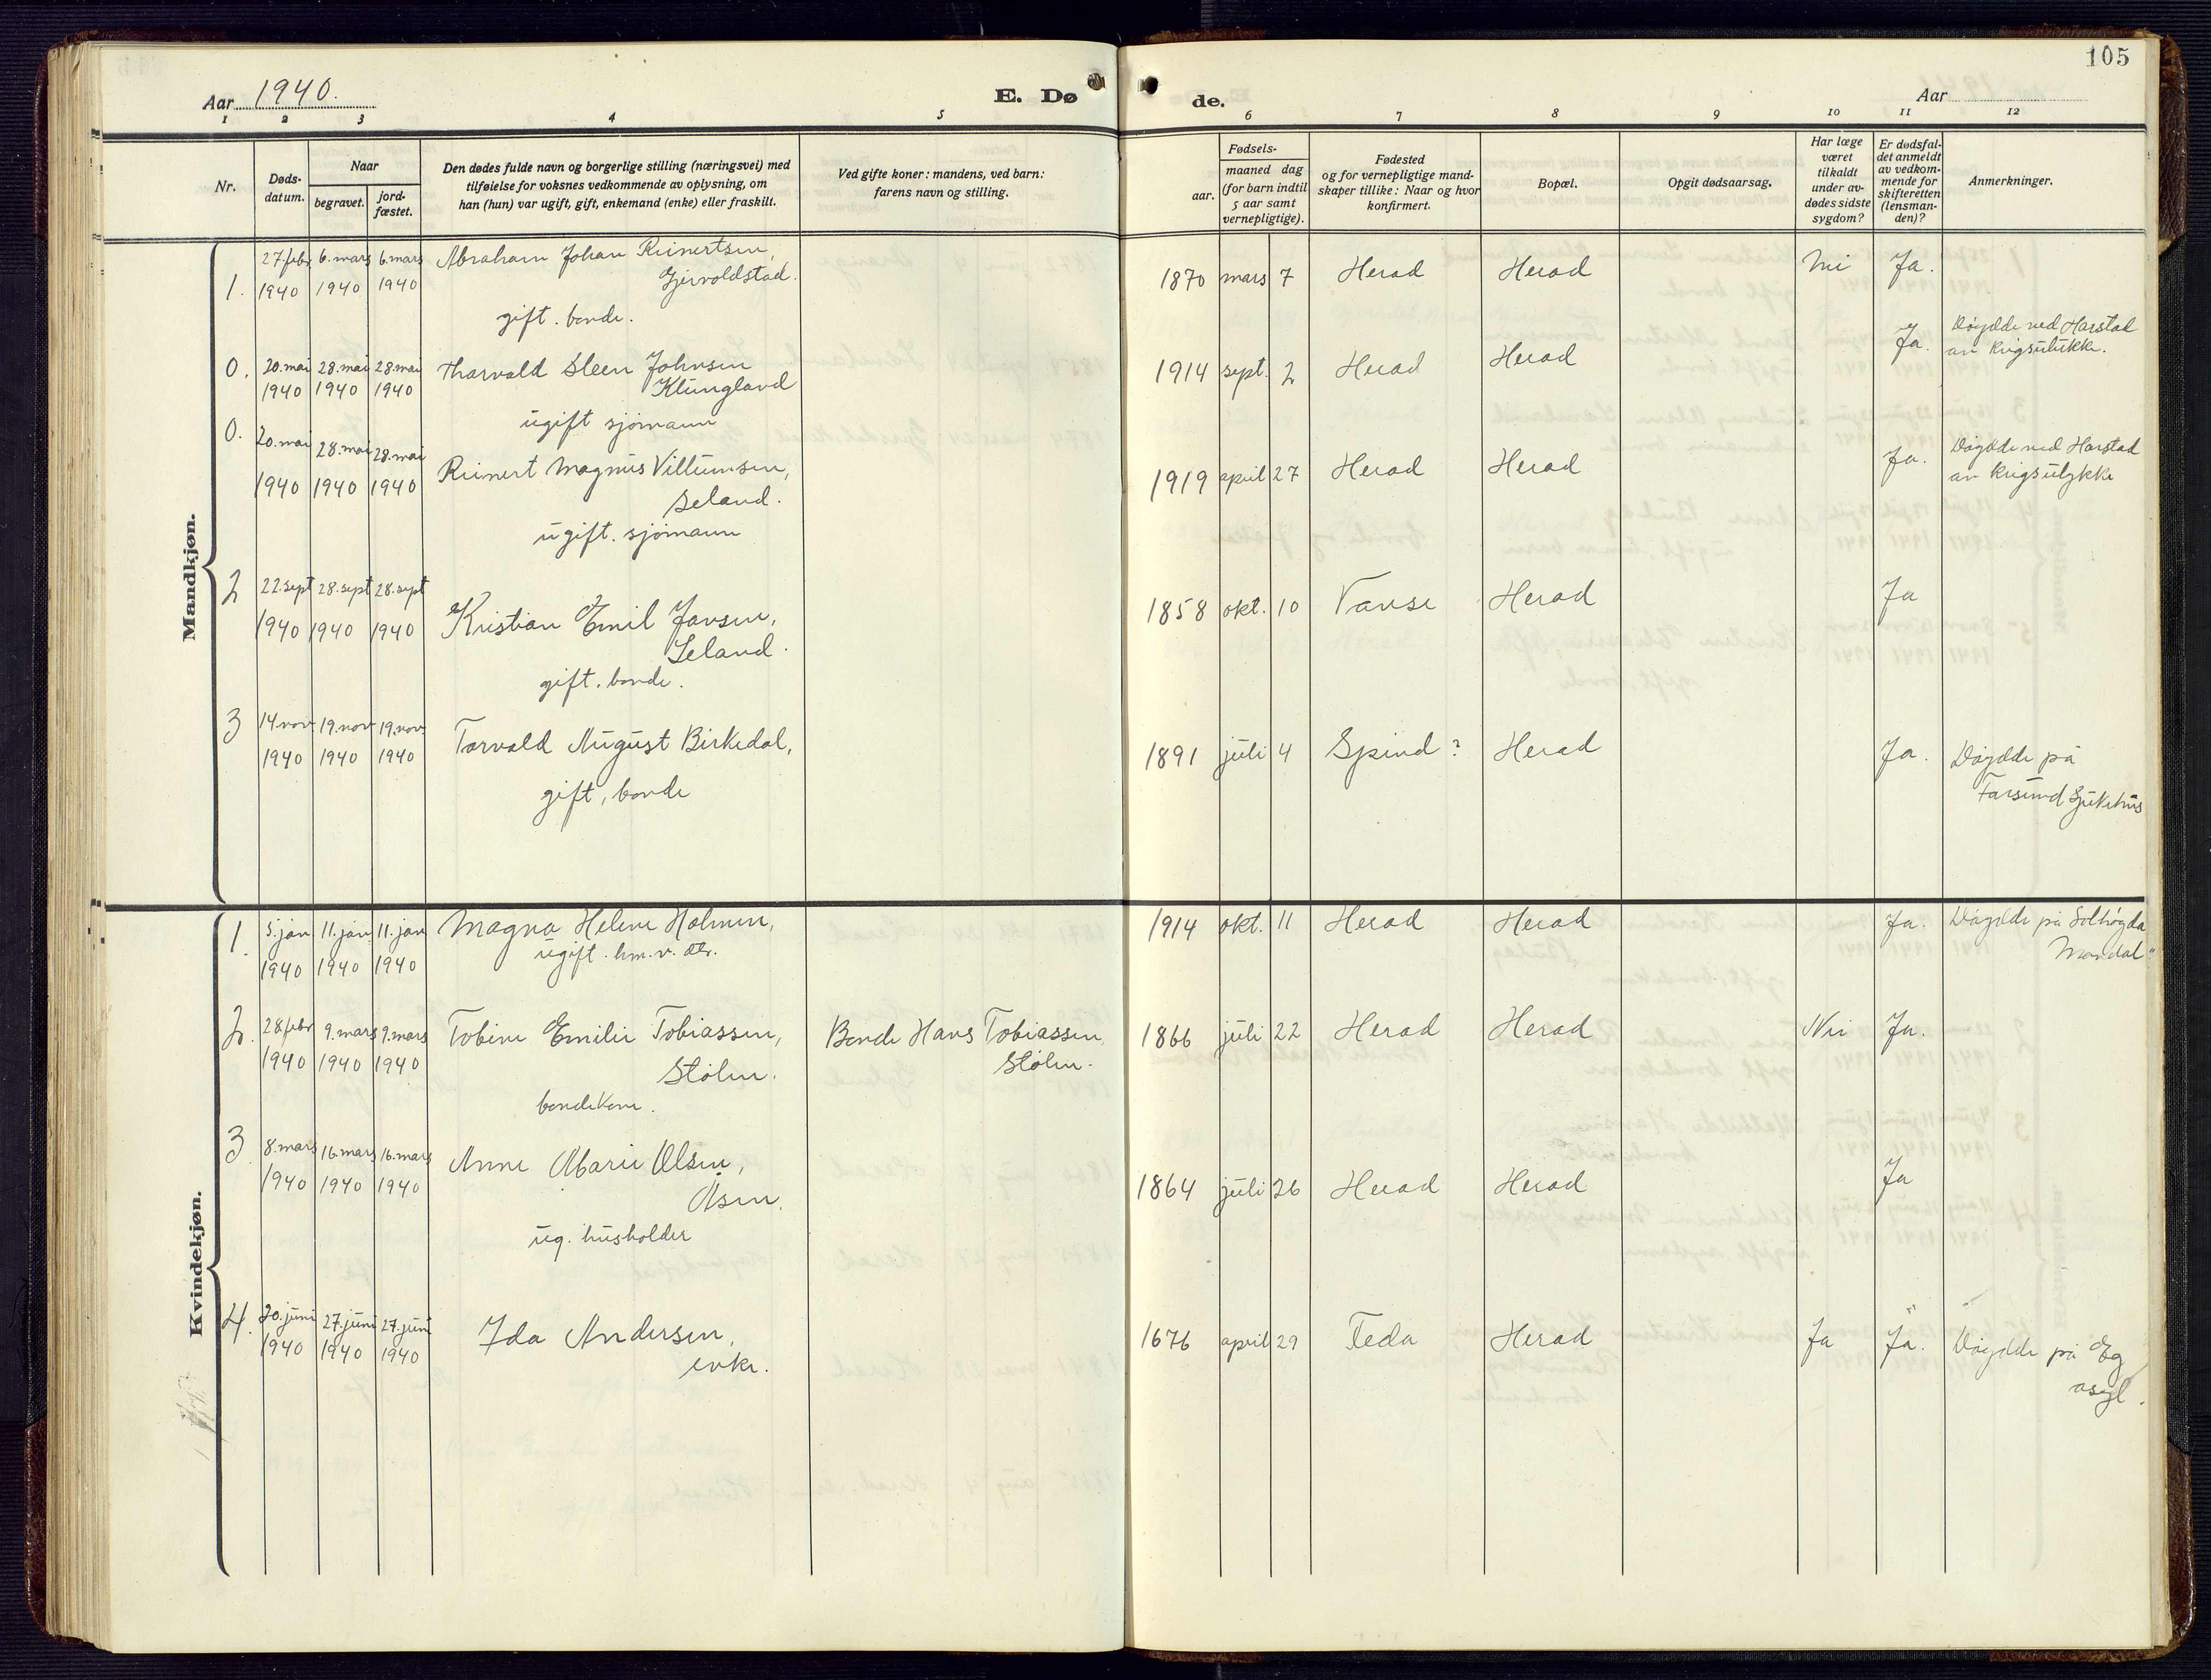 105
Aar 1940.
E. Dø
de.
Aar
1 2 3 4 5 6 7 8 9 10 11 12
Nr.
Døds-
datum.
Naar
begravet.
jord-
fæstet.
Den dødes fulde navn og borgerlige stilling (næringsvei) med
tilføielse for voksnes vedkommende av oplysning, om
han (hun) var ugift, gift, enkemand (enke) eller fraskilt.
Ved gifte koner: mandens, ved barn:
farens navn og stilling.
Fødsels-
aar.
maaned dag
(for barn indtil
5 aar samt
vernepligtige).
Fødested
og for vernepligtige mand-
skaper tillike: Naar og hvor
konfirmert.
Bopæl.
Opgit dødsaarsag.
Har læge
været
tilkaldt
under av-
dødes sidste
sygdom?
Er dødsfal-
det anmeldt
av vedkom-
mende for
skifteretten
(lensman-
den)?
Anmerkninger.
Mandkjøn.
27. febr. 6. mars 6. mars Abraham Johan Reinertsen,
1. 1940 1940 1940 Gjervoldstad.
gift. bonde.
1870 mars 7 Herad Herad Nei Ja.
0. 20. mai 28. mai 28. mai Tharvald Steen Johnsen
1940 1940 1940 Klungland
ugift sjömann
1914 sept. 2 Herad Herad Ja. Döydde ved Harstad
av krigsulukke.
0. 20. mai 28. mai 28. mai
1940 1940 1940 Reinert Magnus Villumsen,
Seland.
ugift. sjömann
1919 april 27 Herad Herad Ja. Döydde ved Harstad
av krigsulykke
2 22. sept 28. sept 28. sept
1940 1940 1940 Kristian Emil Jansen,
Seland.
gift. bonde.
1858 okt. 10 Vanse Herad Ja
3 14 nov. 19. nov 19. nov.
1940 1940 1940 Torvald August Birkedal,
gift, bonde
1891 juli 4 Spind? Herad Ja. Döydde på
Farsund Sjukehus
Kvindekjøn.
1. 5. jan 11. jan. 11. jan Magna Helene Holmen,
1940 1940 1940 ugift. hm. v. dtr.
1914 okt. 11 Herad Herad Ja. Döydde på Solhögda
Mandal"
2. 28. febr 9. mars 9. mars Tobine Emilie Tobiassen,
1940 1940 1940 Stölen.
bondekone.
Bonde Hans Tobiassen,
Stölen.
1866 juli 22 Herad Herad Nei Ja.
3. 8. mars 16. mars 16. mars Anne Marie Olsen,
1940 1940 1940 Åsen.
ug. husholder
1864 juli 26 Herad Herad Ja
4. 20. juni 27. juni 27. juni Ida Andersen,
1940 1940 1940 enke.
1676 april 29 Feda Herad Ja Ja. Döydde på Eg
asyl.